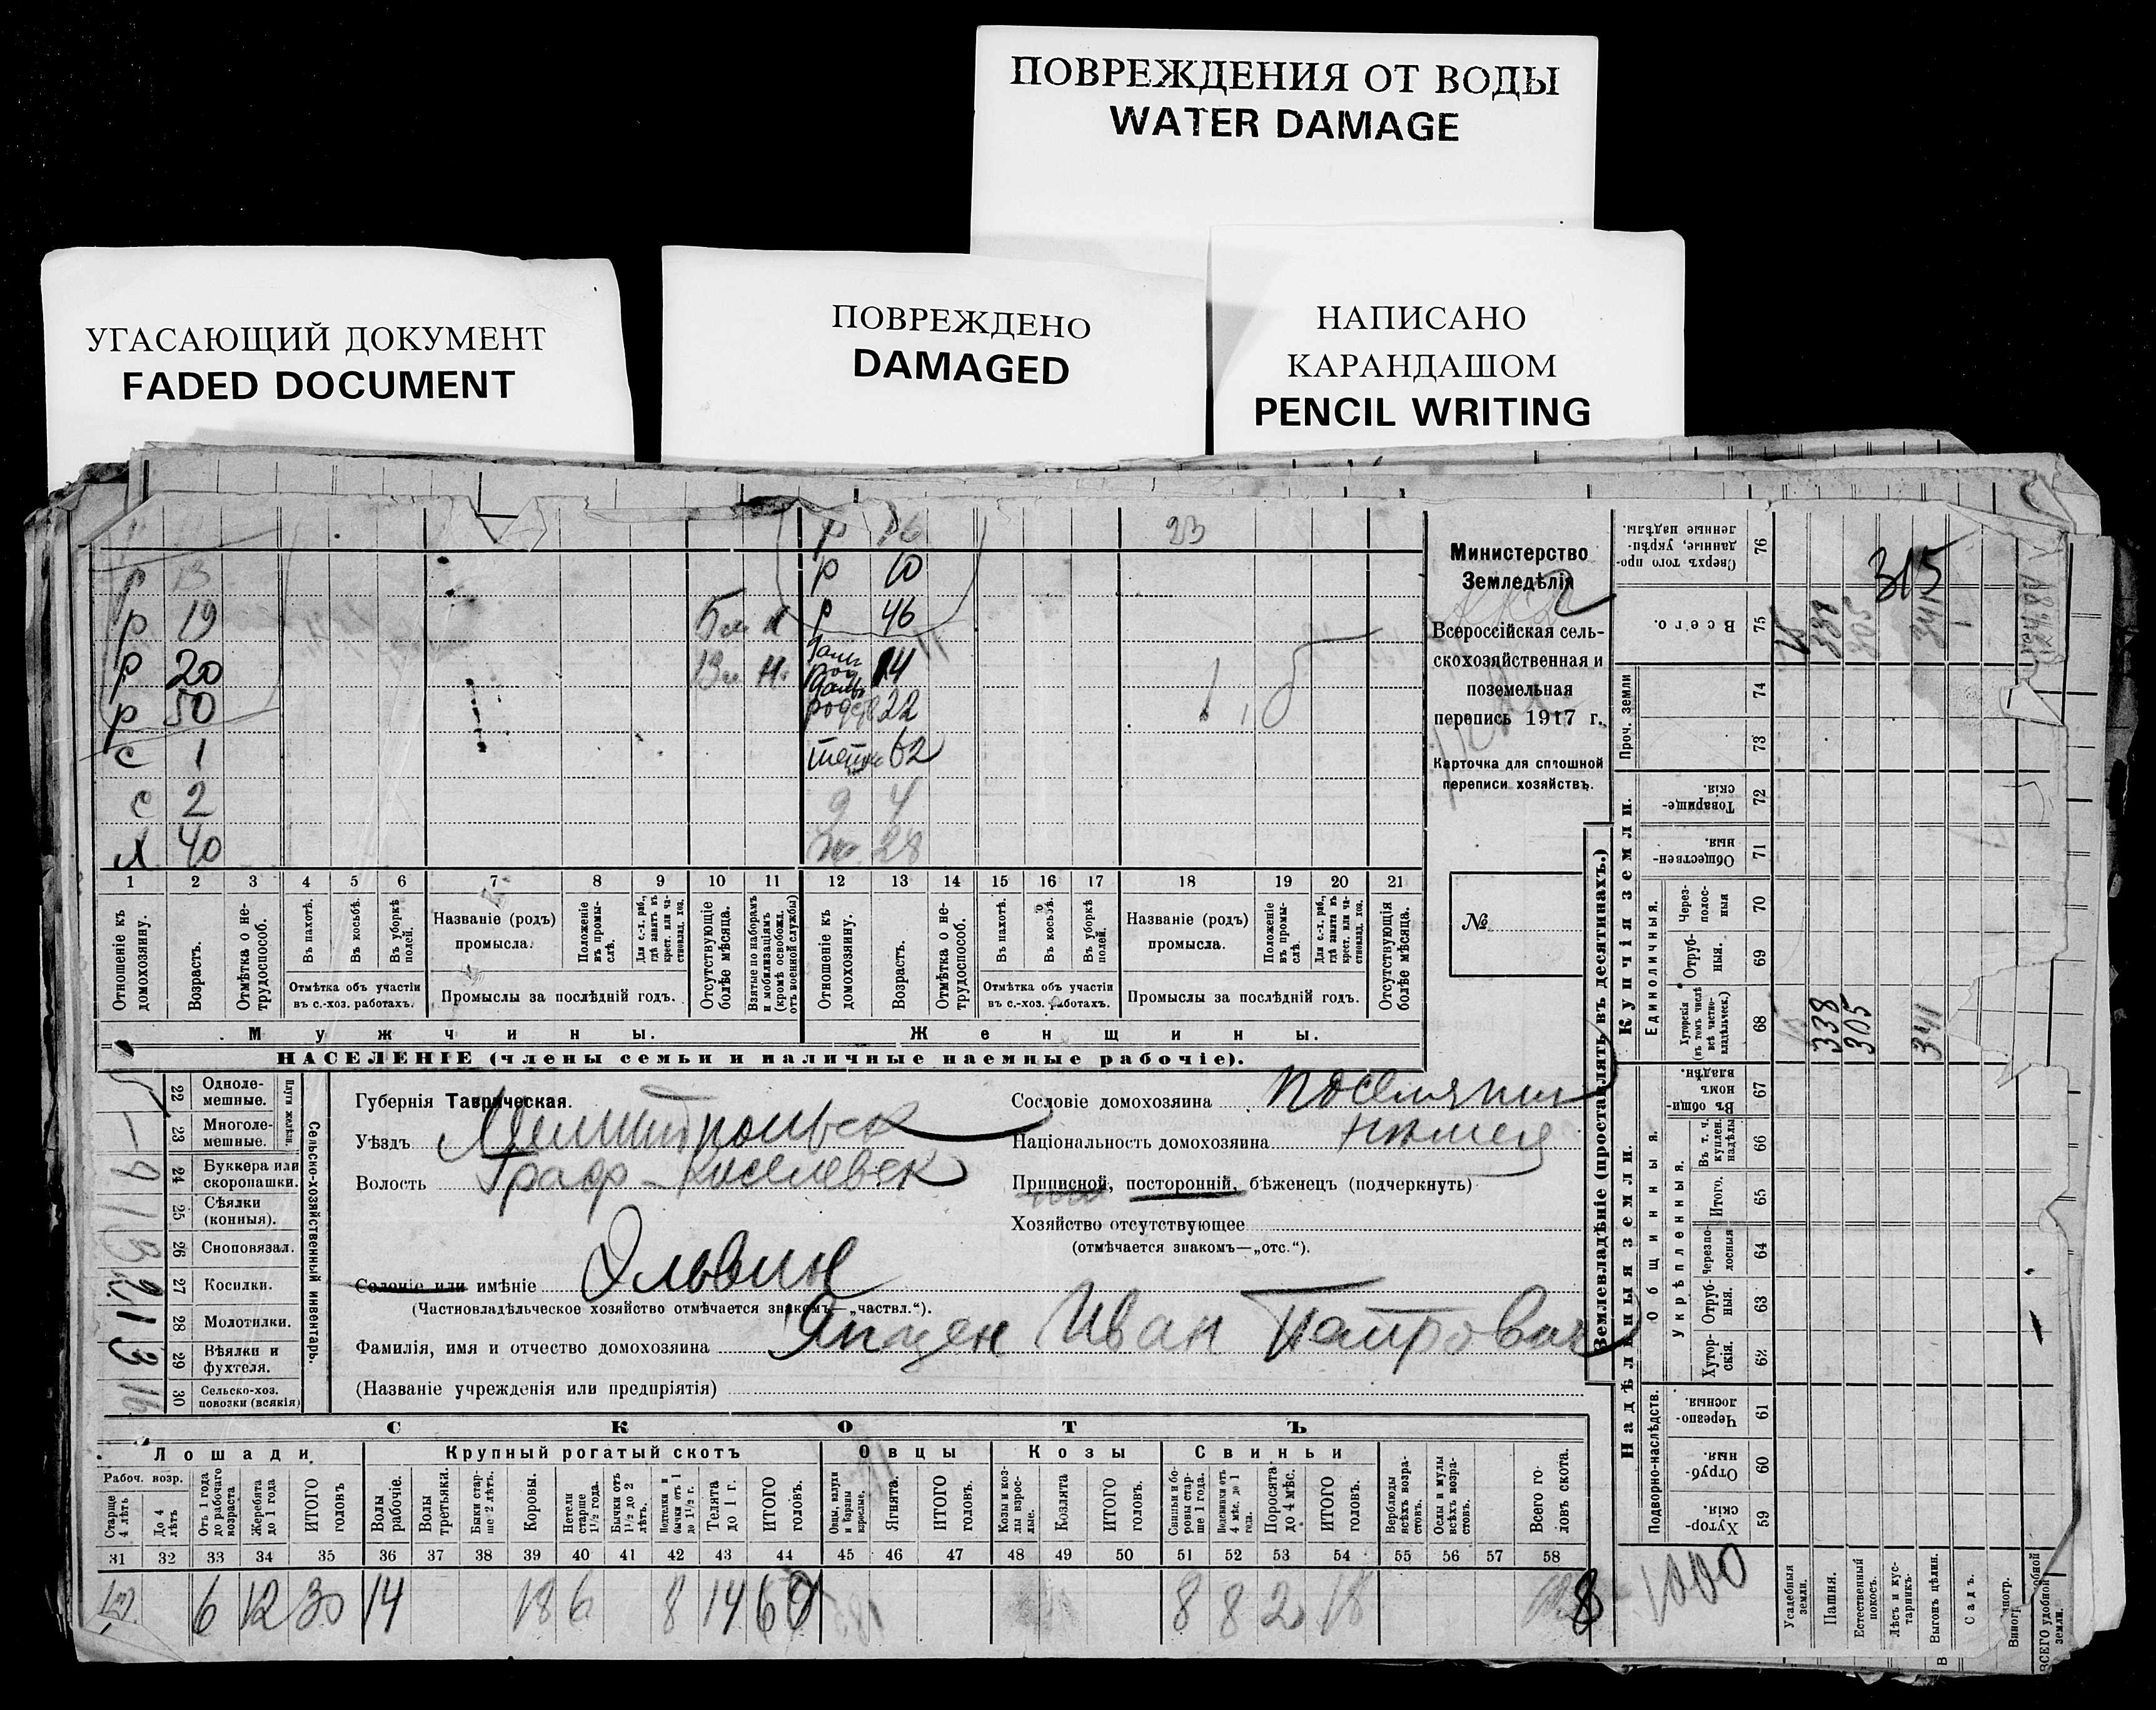 ПОВРЕЖДЕНИЯ ОТ ВОДЫ
WATER DAMAGE
УГАСАЮЩИЙ ДОКУМЕНТ
FADED DOCUMENT
ПОВРЕЖДЕНО
DAMAGED
НАПИСАНО
КАРАНДАШОМ
PENCIL WRITING
р 13
р 19
р 20
р 50
с 1
с 2
х 40
р 16 23
р 10
р 46
14
22
62
д 4
28
1 2 3 4 5 6 7 8 9 10 11 12 13 14 15 16 17 18 19 20 21
Отношеніе къ домохозяину.
Возрастъ.
Отмѣтка о не-трудоспособ.
Въ пахотѣ.
Въ косьбѣ.
Въ уборкѣ полей.
Отмѣтка объ участіи въ с.-хоз. работахъ.
Названіе (родъ) промысла.
Положеніе въ промыслѣ.
Для с.-х. раб., гдѣ занятъ въ крест. или частновлад. хоз.
Промыслы за послѣдній годъ.
Отсутствующіе болѣе мѣсяца.
Взятые по наборамъ и мобилизаціямъ (кромѣ освобожд. отъ военной службы)
Отношеніе къ домохозяину.
Возрастъ.
Отмѣтка о не-трудоспособ.
Въ пахотѣ.
Въ косьбѣ.
Въ уборкѣ полей.
Отмѣтка объ участіи въ с.-хоз. работахъ.
Названіе (родъ) промысла.
Положеніе въ промыслѣ.
Для с.-х. раб., гдѣ занята въ крест. или частновлад. хоз.
Промыслы за послѣдній годъ.
Отсутствующія болѣе мѣсяца.
Мужчины. Женщины.
НАСЕЛЕНІЕ (члены семьи и наличные наемные рабочіе).
Министерство
Земледѣлія
Всероссійская сель-
скохозяйственная и
поземельная
перепись 1917 г.
Карточка для сплошной
переписи хозяйствъ.
№
22 Одноле-мешные.
23 Многоле-мешные.
24 Буккера или скоропашки.
25 Сѣялки (конныя).
26 Сноповязал.
27 Косилки.
28 Молотилки.
29 Вѣялки и фухтеля.
30 Сельско-хоз. повозки (всякія)
Сельско-хозяйственный инвентарь.
Губернія Таврическая.
Уѣздъ Мелитопольск
Волость Граф-Киселевск
Селеніе или имѣніе Ольвин
(Частновладѣльческое хозяйство отмѣчается знакомъ—„частвл.“).
Фамилія, имя и отчество домохозяина Янцен Иван Петрович
(Названіе учрежденія или предпріятія)
Сословіе домохозяина поселянин
Національность домохозяина немец
Приписной, посторонній, бѣженец (подчеркнуть)
Хозяйство отсутствующее
(отмѣчается знакомъ—„отс.“).
СКОТЪ
Лошади. Крупный рогатый скотъ Овцы Козы Свиньи
Рабоч. возр.
Старше 4 лѣтъ
До 4 лѣтъ
Отъ 1 года до рабочаго возраста
Жеребята до 1 года
ИТОГО головъ
Волы рабочіе.
Волы третьяки.
Быки старше 2 лѣтъ.
Коровы.
Нетели старше 1½ года.
Бычки отъ 1½ до 2 лѣтъ.
Телята до 1 г.
ИТОГО головъ.
Ягнята.
ИТОГО головъ.
Козы и козлы взрослые.
Козлята
ИТОГО головъ.
Свиньи и боровы старше 1 года.
Подсвинки отъ 4 мѣс. до 1 года.
Поросята до 4 мѣс.
ИТОГО головъ.
Верблюды всѣхъ возрастовъ.
Ослы и мулы всѣхъ возрастовъ.
Всего головъ скота.
31 32 33 34 35 36 37 38 39 40 41 42 43 44 45 46 47 48 49 50 51 52 53 54 55 56 57 58
12 6 12 30 14 18 6 8 14 60 8 8 2 18
1000
Землевладѣніе (проставлять въ десятинахъ.)
Надѣльныя земли.
Купчія земли.
Проч. земли
Сверхъ того проданные, укрѣпленные надѣлы.
76
Всего. 75
74
73
Товарищескія. 72
Общественныя. 71
Единоличныя.
Черезполосныя 70
Отрубныя. 69
Хуторскія (въ томъ числѣ всѣ частновладѣльческ.) 68
Общинныя.
Въ общинномъ владѣн. 67
Въ т. ч. куплен. надѣлы 66
Укрѣпленныя.
Итого. 65
Черезполосныя 64
Отрубныя. 63
Хуторскія. 62
Подворно-наслѣдств.
Черезполосныя. 61
Отрубныя. 60
Хуторскія. 59
315
338
305
341
338
305
341
Усадебныя земли.
Пашня.
Естественный покосъ.
Лѣсъ и кустарникъ.
Выгонъ цѣлин.
Садъ.